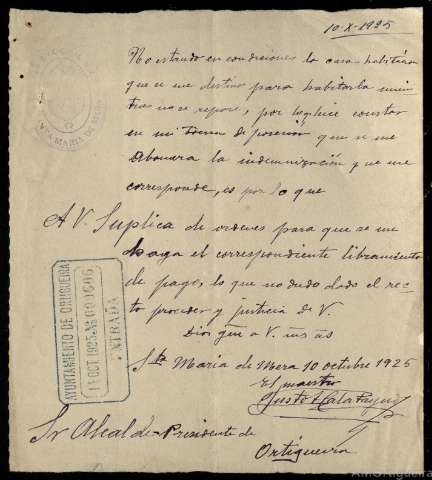 10-X-1925
No estando en condiciones la casa-habitación
que se me destinó para habitarla mien
tras no se repare, por lo que hice constar
en mi toma de posesión que se me
abonara la indemnización que me
corresponde, es por lo que
A V. Suplica dé ordenes para que se me
haga el correspondiente libramiento
de pago, lo que no dudo dado el rec
to proceder y justicia de V.
Dios gue a V. ms as
Sta María de Mera 10 octubre 1925
El maestro
Justo
Sr Alcalde-Presidente de
Ortigueira
AYUNTAMIENTO DE ORTIGUEIRA
14 OCT. 1925 ★ Nº 001006
ENTRADA
MARIA DE MERA
AMOrtigueira